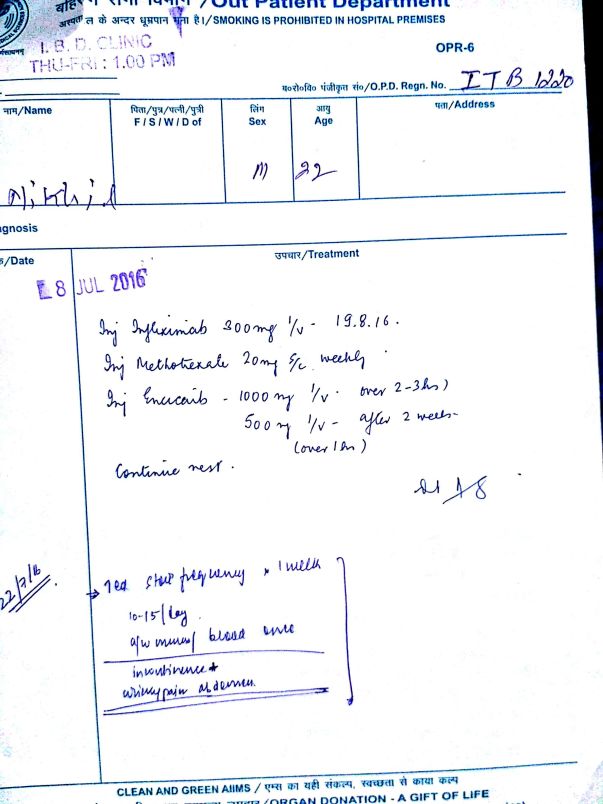 बहिरंग रोगी विभाग / Out Patient Department
अस्पताल के अन्दर धूम्रपान मना है।/SMOKING IS PROHIBITED IN HOSPITAL PREMISES
I. B. D. CLINIC
THU-FRI : 1.00 PM
OPR-6
ब०रो०वि० पंजीकृत सं०/O.P.D. Regn. No. ITB 1220
नाम/Name
पिता/पुत्र/पत्नी/पुत्री
F / S / W / D of
लिंग
Sex
आयु
Age
पता/Address
Nikhil
M
22
agnosis
/Date
उपचार/Treatment
8 JUL 2016
Inj Infliximab 300mg I/V - 19.8.16.
Inj Methotrexate 20mg S/C weekly
Inj Encicarb - 1000 mg I/V. over 2-3 hrs)
500 mg I/V - after 2 weeks
(over 1 hr)
Continue rest.
22/7/16
→ stool frequency x 1 week
10-15/day
a/w mucus/ blood once
incontinence+
pain abdomen
CLEAN AND GREEN AIIMS / एम्स का यही संकल्प, स्वच्छता से काया कल्प
/ORGAN DONATION - A GIFT OF LIFE